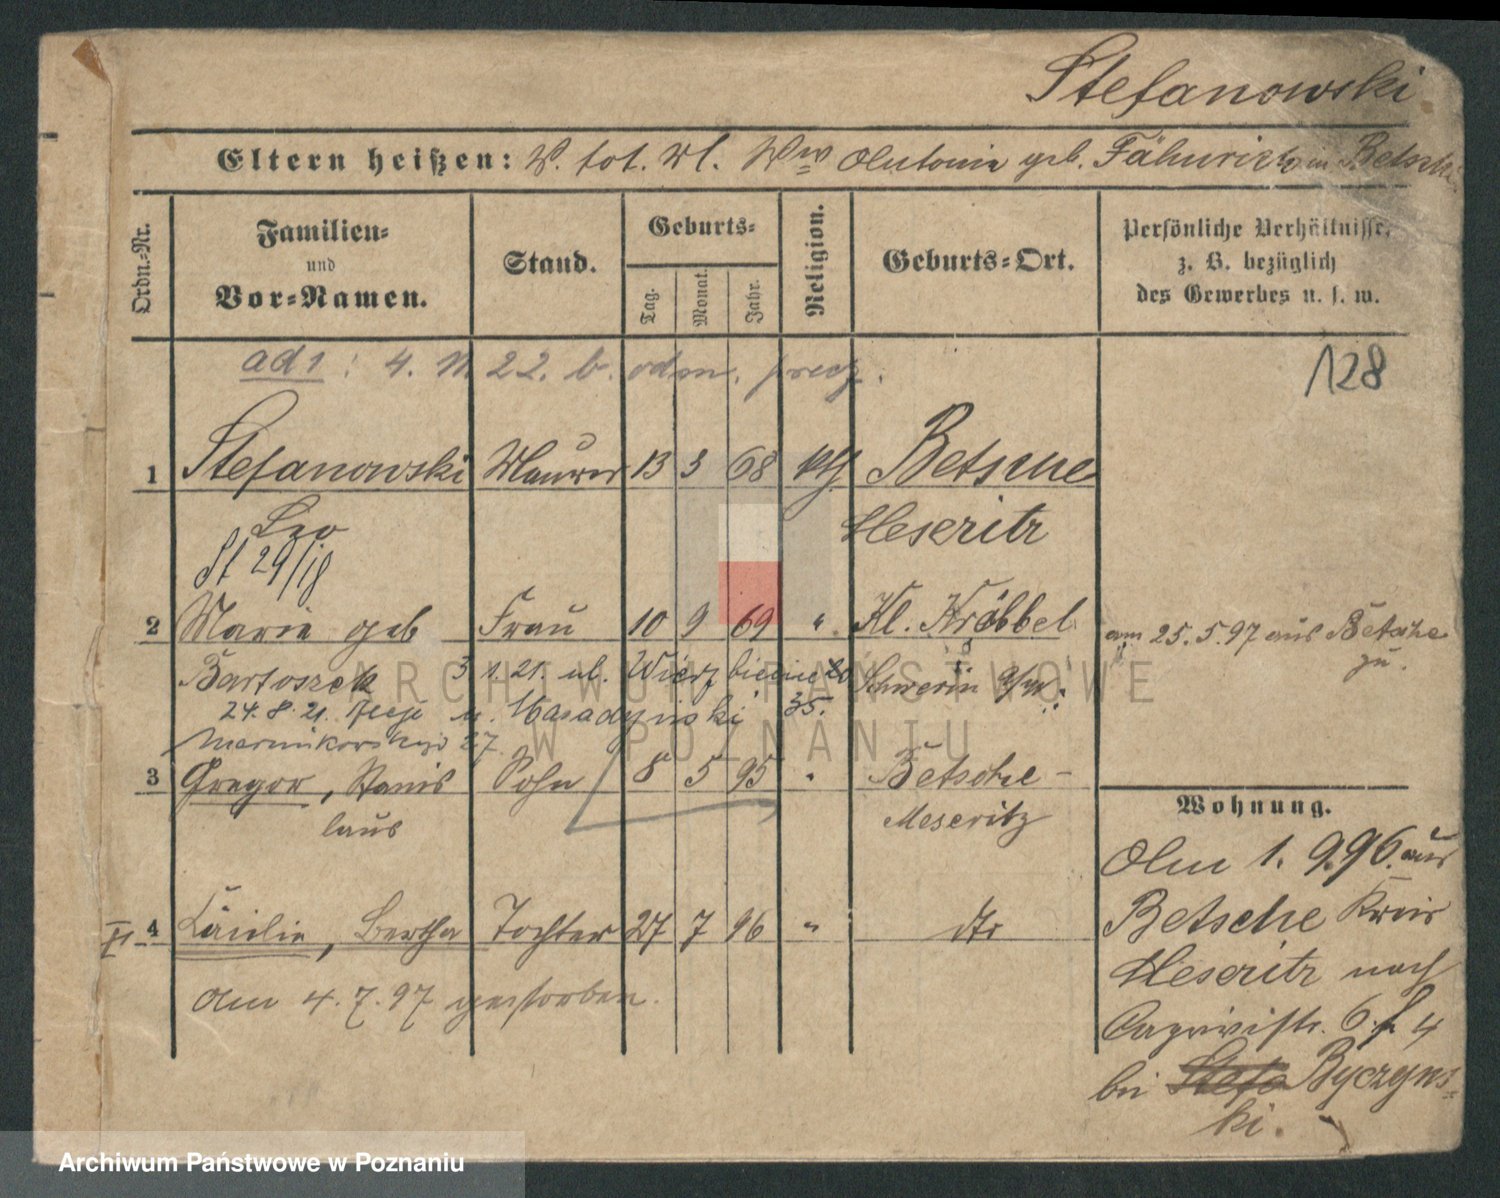 Stefanowski
Eltern heißen: V. tot. M. Ww Antonia geb. in Betsche
Ordn.-Nr.
Familien- und Vor-Namen.
Stand.
Geburts-
Tag.
Monat.
Jahr.
Religion.
Geburts-Ort.
Persönliche Verhältnisse, z. B. bezüglich des Gewerbes u. s. w.
ad 1: 4. 11. 22. b. odm.
128
1 Stefanowski Maurer 13 3 68 kth Betsche
Leo Meseritz
St 29/18
2 Marie geb Frau 10 9 69 " Kl. Krebbel am 25.5.97 aus Betsche
zu.
Bartoszek 3 1. 21. ul. Wierzbięcice 20 Schwerin a/W.
24. 8. 21. u. 35.
27.
3 Gregor, Stanis Sohn 8 5 95 " Betsche -
laus Meseritz
Wohnung.
Am 1. 9. 96. aus
4 Cäcilie, Bertha Tochter 27 7 96 " dto
Betsche Kreis
Meseritz nach
Am 4. 7. 97 gestorben.
Caprivistr. 6 4
bei Byczyns-
ki.
ARCHIWUM PAŃSTWOWE
W POZNANIU
Archiwum Państwowe w Poznaniu